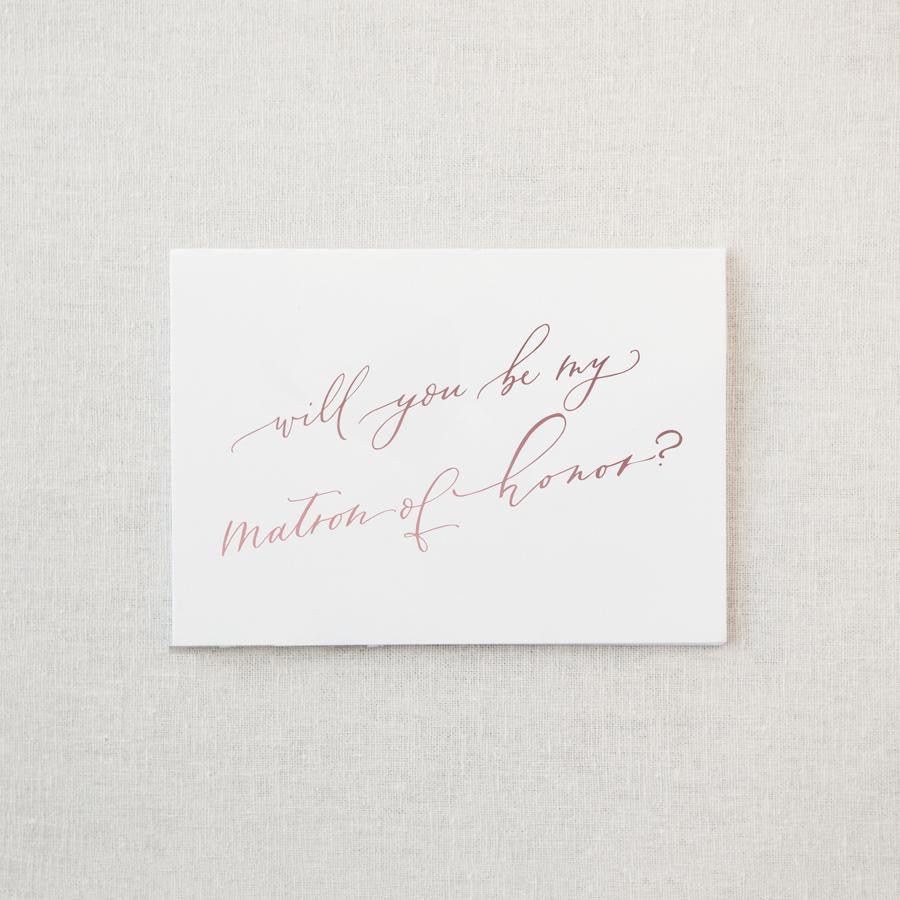 will you be my
matron of honor?